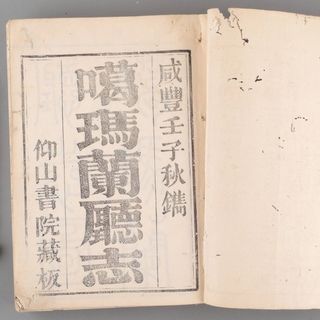 咸豐壬子秋鐫
噶瑪蘭廳志
仰山書院藏板